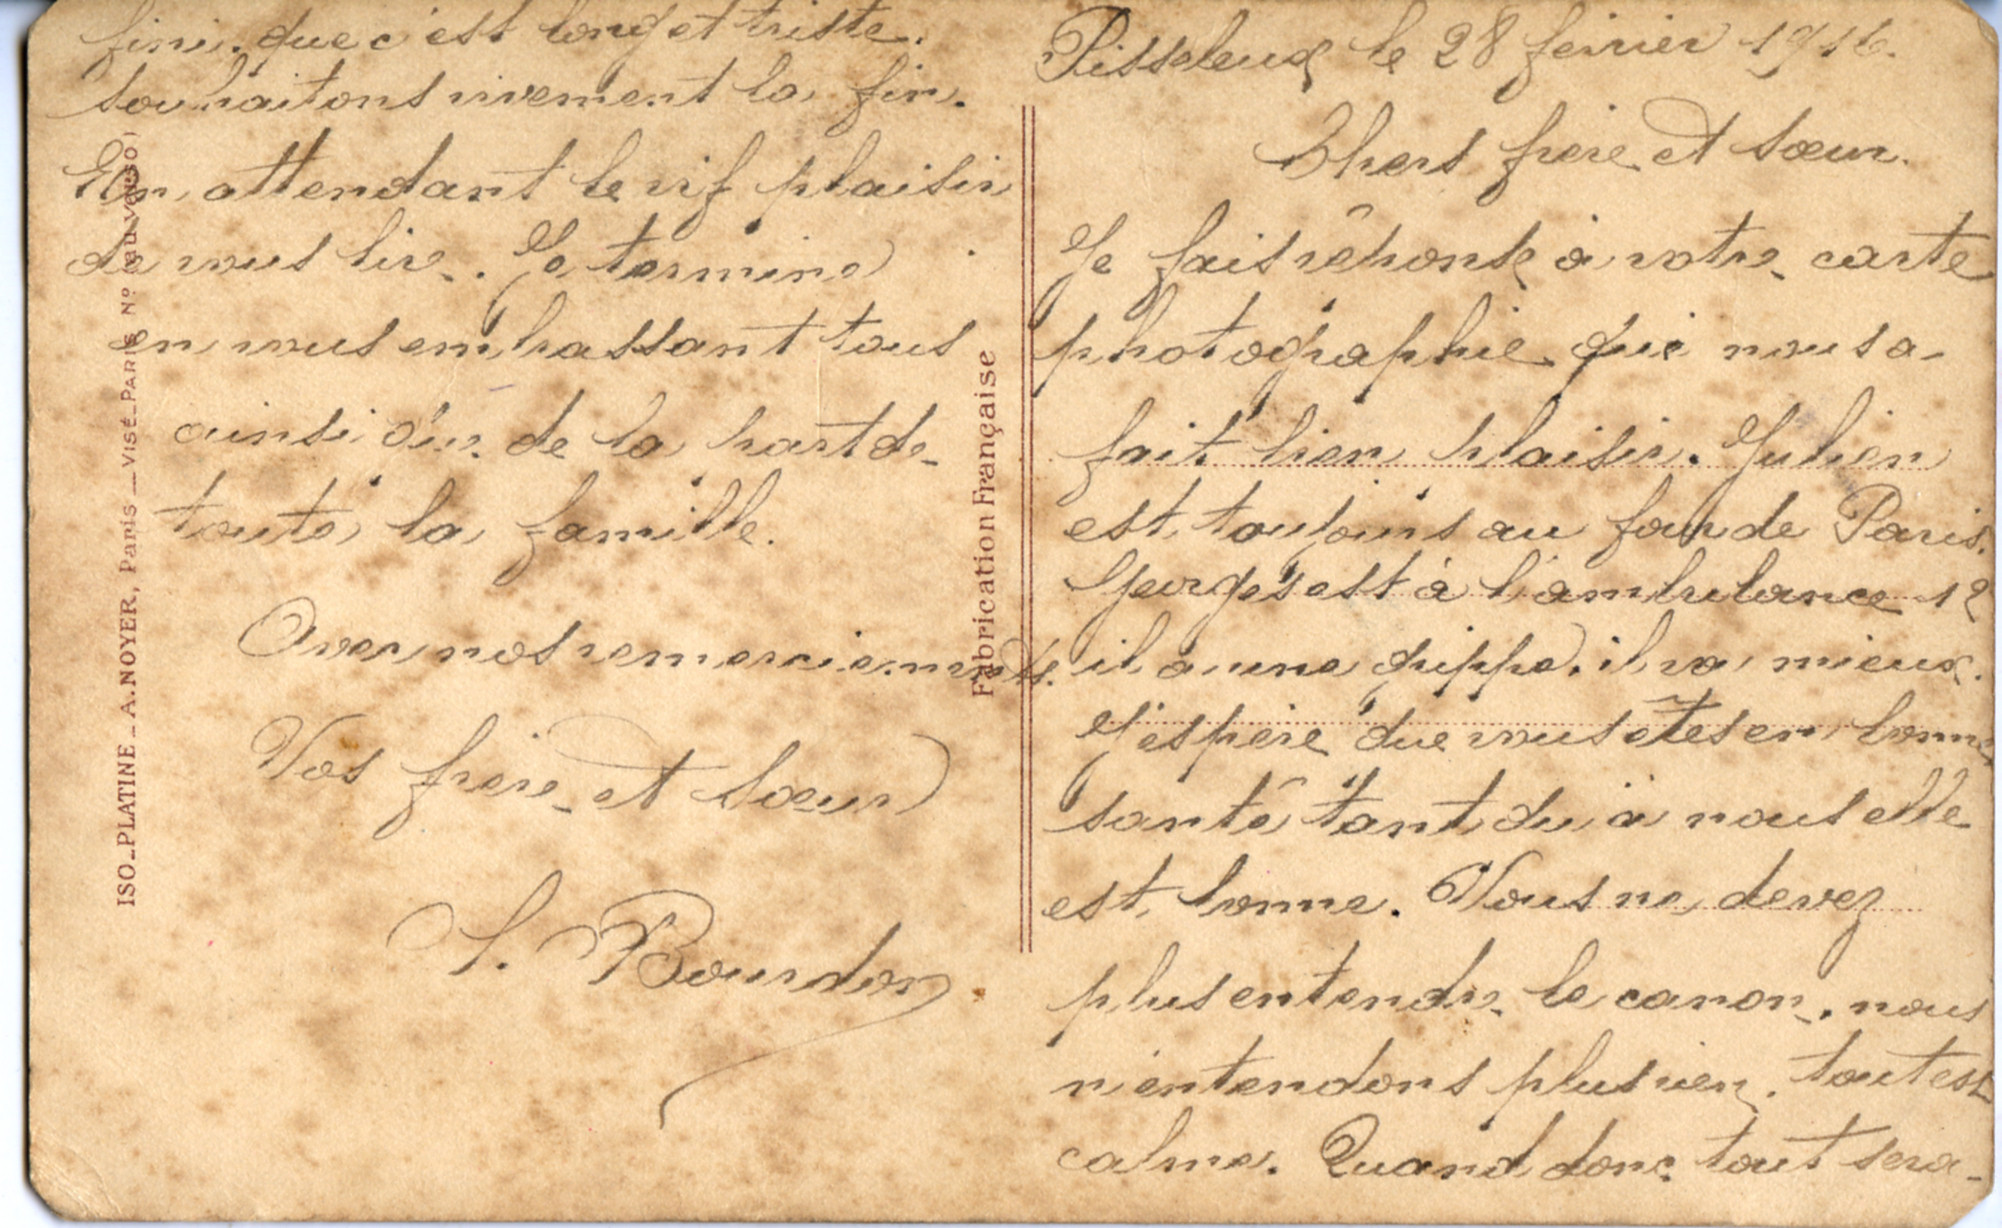 Pisseleux le 28 février 1916.
Chers frère et sœur.
Je fais réponse à votre carte
photographie qui nous a
fait bien plaisir. Julien
est toujours au fort de Paris.
Georges est à l'ambulance 12
il a une grippe. il va mieux.
J'espère que vous êtes en bonne
santé tant qu'à nous elle
est bonne. Vous ne devez
plus entendre le canon. nous
n'entendons plus rien. tout est
calme. Quand donc tout sera
fini. que c'est long et triste.
souhaitons vivement la fin.
En attendant le vif plaisir
de vous lire. Je termine
en vous embrassant tous
ainsi que de la part de
toute la famille.
Avec nos remerciements.
Vos frère et sœur
Bourdon
Fabrication Française
ISO_PLATINE _ A. NOYER, Paris _ VISÉ_PARIS Nº (au verso)